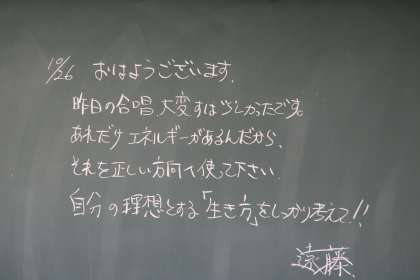 10/26 おはようございます。
昨日の合唱、大変すばらしかったです。
あれだけエネルギーがあるんだから、
それを正しい方向へ使って下さい。
自分の理想とする「生き方」をしっかり考えて!!
遠藤